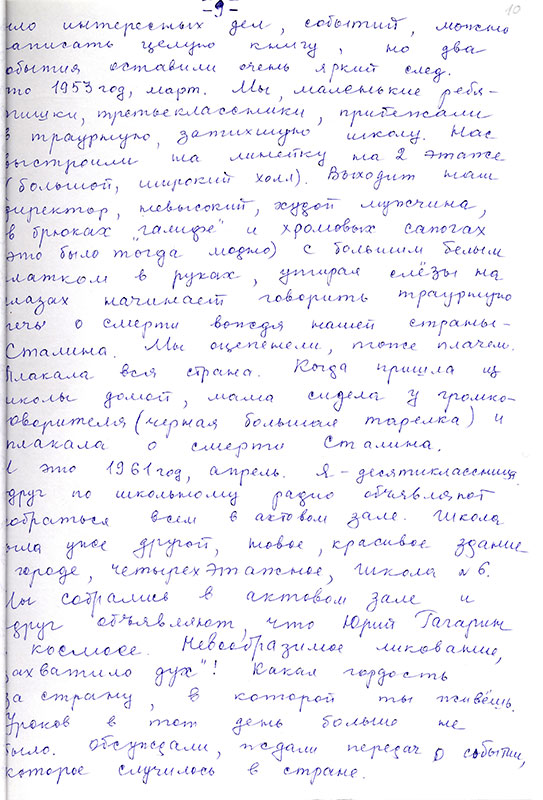 -9-
10
ило интересных дел, событий, можно
аписать целую книгу, но два
обытия оставили очень яркий след.
то 1953 год, март. Мы, маленькие ребя-
тишки, третьеклассники, прибежали
в траурную, затихшую школу. Нас
выстроили на линейку на 2 этаже
(большой, широкий холл). Выходит наш
директор, невысокий, худой мужчина,
в брюках "галифе" и хромовых сапогах
это было тогда модно) с большим белым
латком в руках, утирая слёзы на
лазах начинает говорить траурную
ечь о смерти вождя нашей страны-
Сталина. Мы оцепенели, тоже плачем.
Плакала вся страна. Когда пришла из
школы домой, мама сидела у громко-
оворителя (черная большая тарелка) и
плакала о смерти Сталина.
А это 1961 год, апрель. Я - десятиклассница
друг по школьному радио объявляют
собраться всем в актовом зале. Школа
ыла уже другой, новое, красивое здание
городе, четырехэтажное, школа № 6.
Мы собрались в актовом зале и
друг объявляют, что Юрий Гагарин
космосе. Невообразимое ликование,
захватило дух"! Какая гордость
за страну, в которой ты живёшь.
Уроков в тот день больше не
было. Обсуждали, ждали передач о событии,
которое случилось в стране.